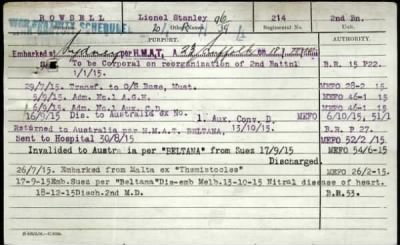 ROWSELL Lionel Stanley 214 2nd Bn.
WAR GRATUITY SCHEDULE
PURPORT. AUTHORITY.
Embarked at Sydney per H.M.A.T. A 23 Suffolk on
To be Corporal on reorganization of 2nd Battn B.R. 15 P22.
1/1/15.
29/7/15. Transf. to O/S Base, Must. MEFO 28-2 15.
5/9/15. Adm. No.1 A.G.H. MEFO 46-1 15
6/9/15. Adm. No.1 Aux. C.D. MEFO 46-1 15.
16/9/15 Dis. to Australia ex No. 1 Aux. Conv. D. MEFO 6/10/15, 51/1
Returned to Australia per H.M.A.T. BELTANA, 13/10/15. B.R. P 27.
Sent to Hospital 30/8/15 MEFO 52/2 /15
Invalided to Australia per "BELTANA" from Suez 17/9/15 MEFO 54/6-15
Discharged.
26/7/15. Embarked from Malta ex "Themistocles" MEFO 26/2-15.
17-9-15 Emb.Suez per "Beltana" Dis-emb Melb.13-10-15 Nitral disease of heart.
18-12-15 Disch.2nd M.D. B.R.53.